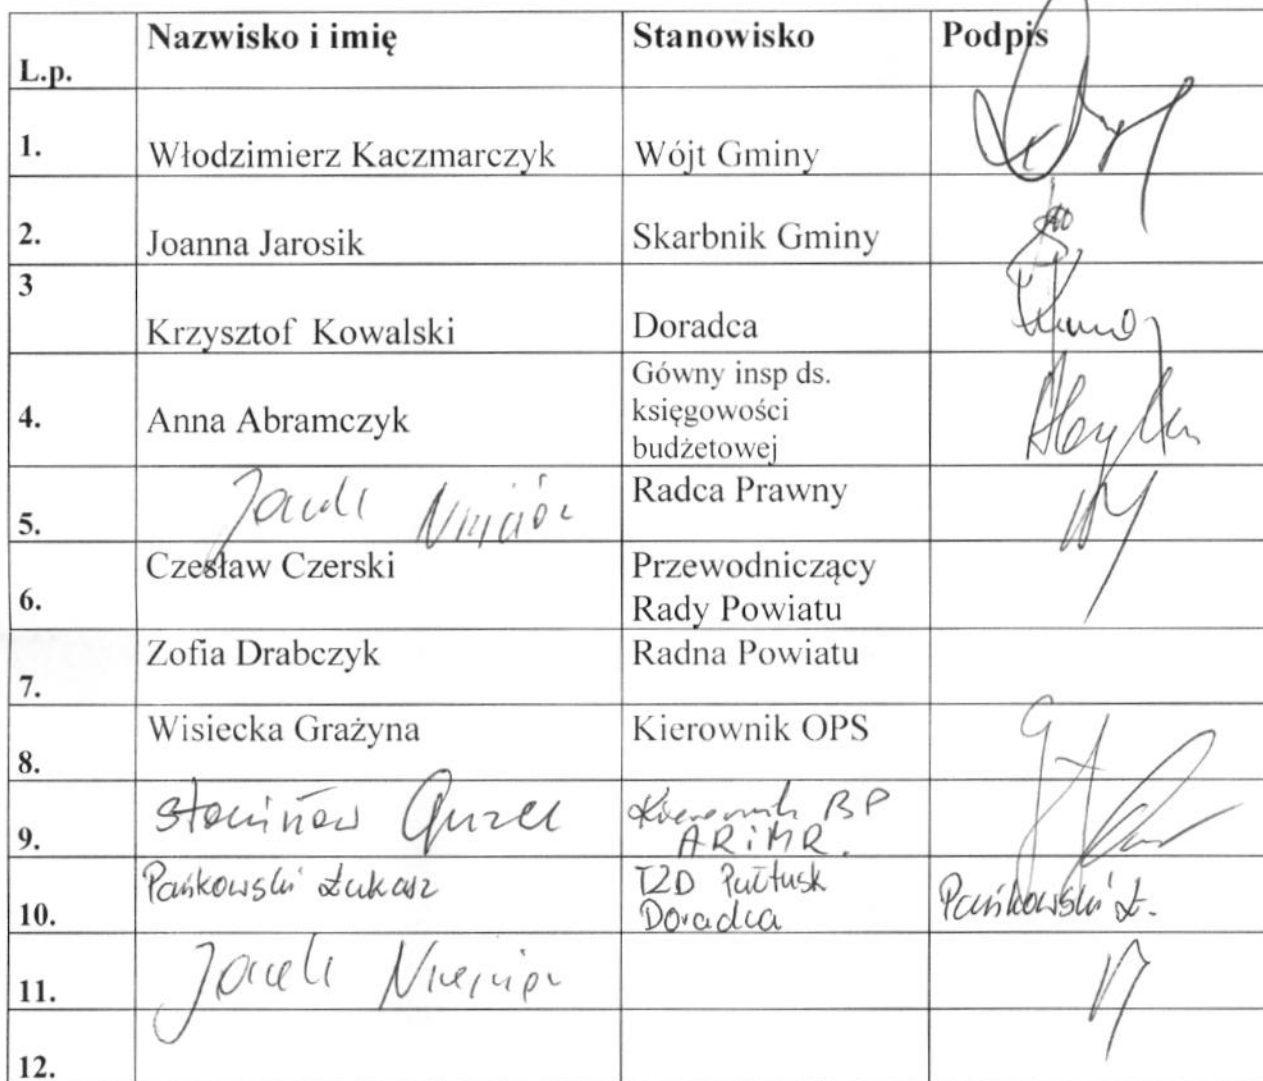 L.p. Nazwisko i imię Stanowisko Podpis
1. Włodzimierz Kaczmarczyk Wójt Gminy
2. Joanna Jarosik Skarbnik Gminy
3 Krzysztof Kowalski Doradca
4. Anna Abramczyk Gówny insp ds.
księgowości
budżetowej
5. Jacek Radca Prawny
6. Czesław Czerski Przewodniczący
Rady Powiatu
7. Zofia Drabczyk Radna Powiatu
8. Wisiecka Grażyna Kierownik OPS
9. Stanisław Kierownik BP
ARiMR.
10. Pańkowski Łukasz TZD Pułtusk Pańkowski Ł.
Doradca
11. Jacek
12.